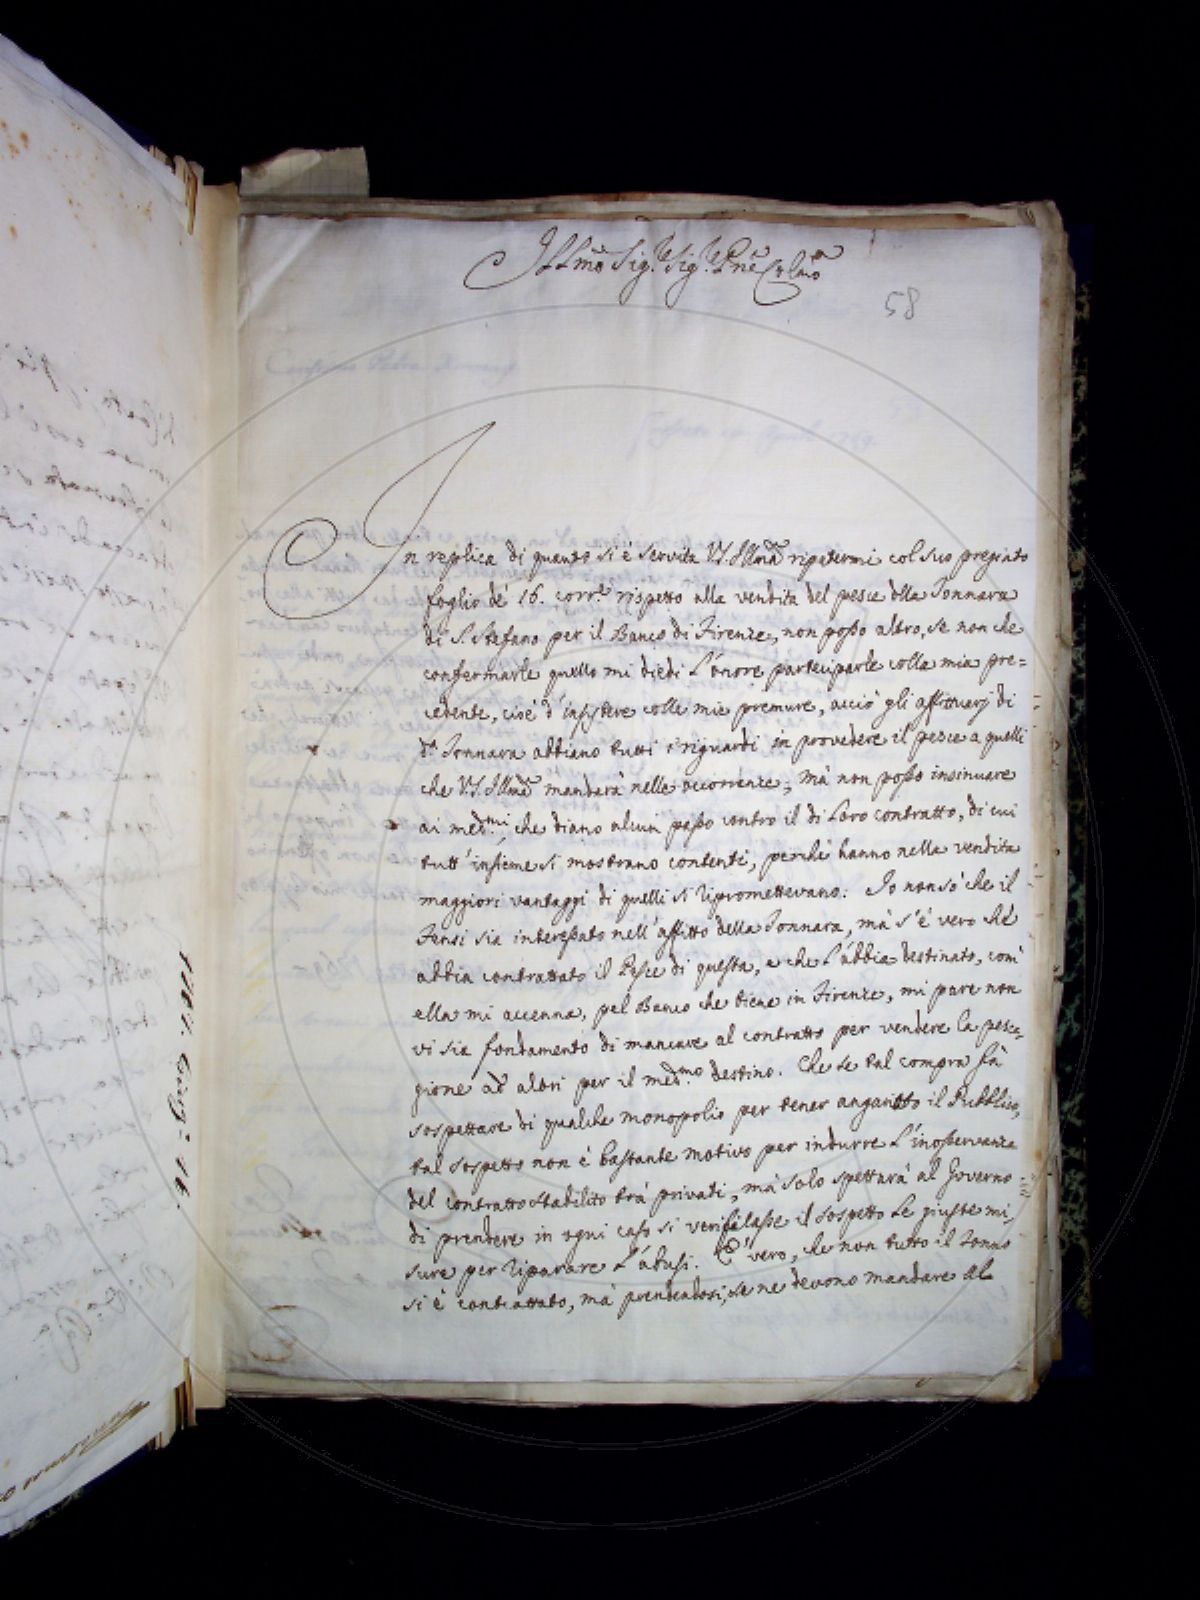 Illmo Sig.r Sig.r Pne Colmo
58
In replica di quanto si è servita VS. Illma ripetermi col suo pregiato
foglio de' 16. corr.te rispetto alla vendita del pesce dlla Tonnara
di S. Stefano per il Banco di Firenze, non posso altro, se non che
confermarle quello mi diedi l'onore parteciparle colla mia pre=
cedente, cioè d'insistere colle mie premure, acciò gli affittuarj di
da. Tonnara abbiano tutti i riguardi in provedere il pesce a quelli
che VS. Illma mandarà nelle occorrenze, mà non posso insinuare
ai med.mi, che diano alcun passo contro il di loro contratto, di cui
tutt'insieme si mostrano contenti, perchè hanno nella vendita
maggiori vantaggi di quelli si ripromettevano. Io non sò che il
Tensi sia interessato nell'affitto della Tonnara, mà s'è vero ch'è
abbia contrattato il Pesce di questa, e che l'abbia destinato, com'
ella mi accenna, pel Banco che tiene in Firenze, mi pare non
vi sia fondamento di mancare al contratto per vendere la pesca-
gione ad altri per il med.mo destino. Che se tal compra fà
sospettare di qualche monopolio per tener angariato il Pubblico,
tal sospetto non è bastante motivo per indurre l'inosservanza
del contratto stabilito trà privati, mà solo spettarà al Governo
di prendere in ogni caso si verificasse il sospetto le giuste mi-
sure per riparare l'abusi. E' vero, che non tutto il Tonno
si è contrattato, mà prendendosi, se ne devono mandare al